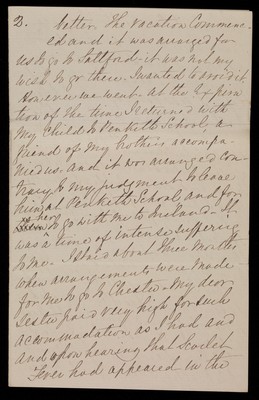 2. better. The Vacation Commenc-
ed and it was arranged for
us to go to Saltford - it was not my
wish to go there. I wanted to avoid it
However we went. At the expira
tion of the time I returned with
My Child to Penketh School, a
friend of my Mother's accompa-
nied us. And it was arranged con-
trary to my judgment to leave
him at Penketh School, and for
me to go with me to Ireland. It
was a time of intense suffering
to me. I staid about three Months
when arrangements were made
for me to go to Chester. My dear
Sister paid very high for such
accommodation as I had and
and upon hearing that Scarlet
Fever had appeared in the